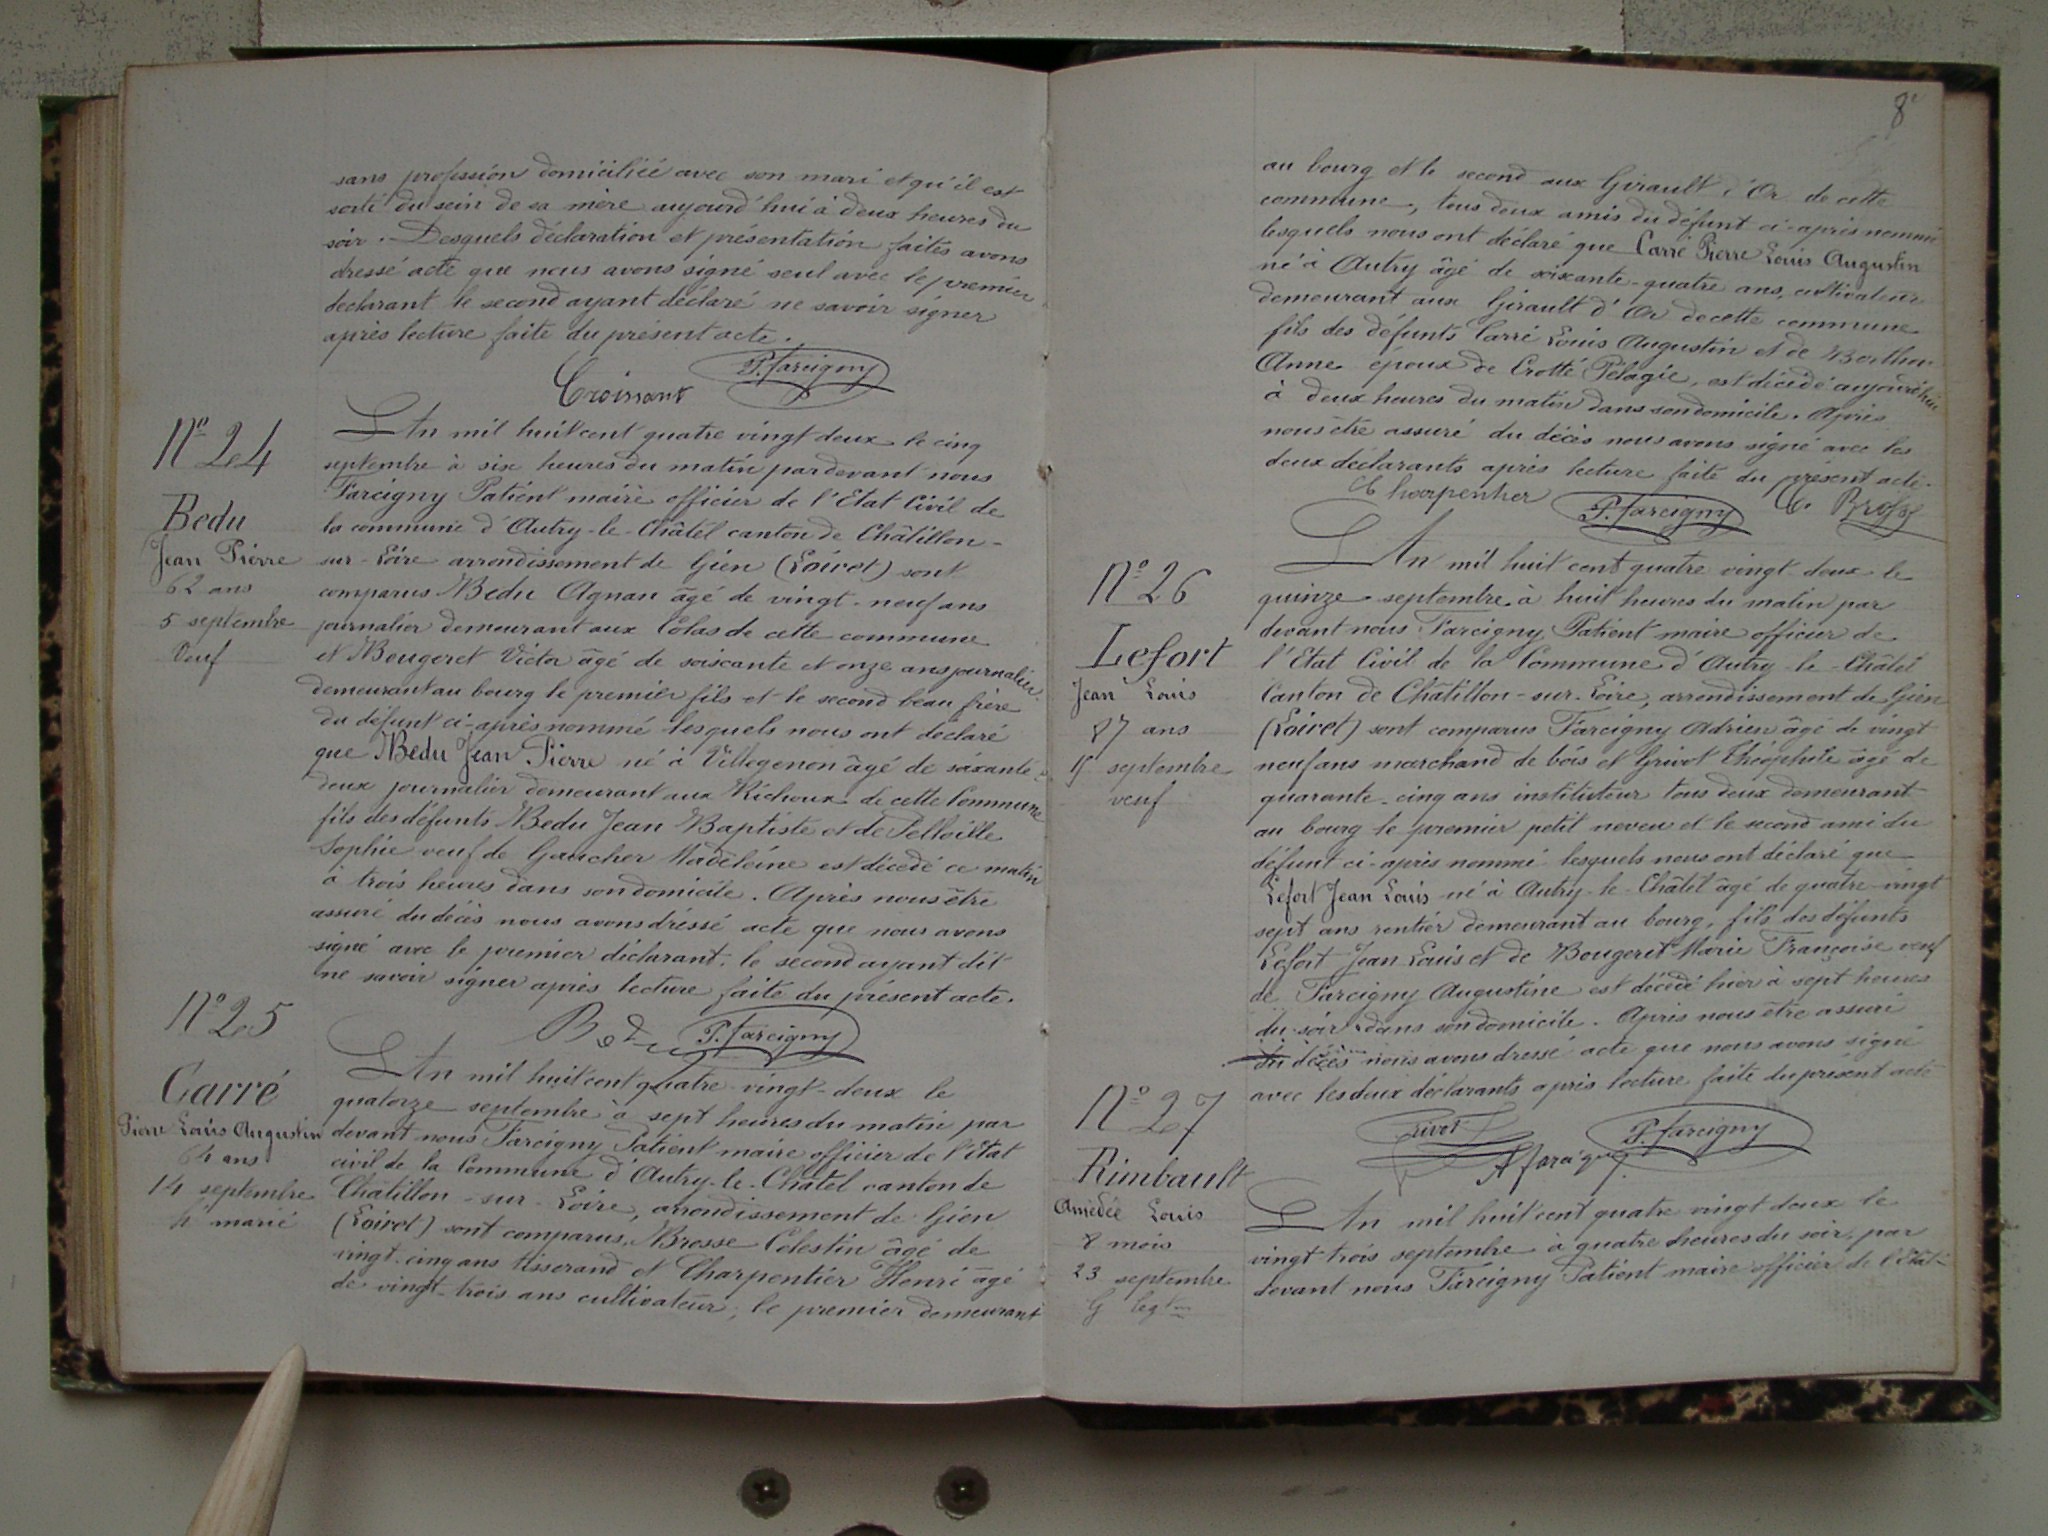 sans profession domiciliée avec son mari et qu'il est
sorti du sein de sa mère aujourd'hui à deux heures du
soir. Desquels déclaration et présentation faites avons
dressé acte que nous avons signé seul avec le premier
declarant le second ayant déclaré ne savoir signer
après lecture faite du présent acte.
Croissant P. Farcigny
N° 24
Bedu
Jean Pierre
62 ans
5 septembre
Veuf
L'An mil huit cent quatre vingt deux le cinq
septembre à six heures du matin par devant nous
Farcigny Patient maire officier de l'Etat Civil de
la commune d'Autry-le-Châtel canton de Châtillon-
sur-Loire arrondissement de Gien (Loiret) sont
comparus Bedu Agnan âgé de vingt-neuf ans
journalier demeurant aux Colas de cette commune
et Bougeret Victor âgé de soixante et onze ans journalier
demeurant au bourg le premier fils et le second beau frère
du défunt ci-après nommé lesquels nous ont déclaré
que Bedu Jean Pierre né à Villegenon âgé de soixante-
deux journalier demeurant aux Richoux de cette Commune
fils des défunts Bedu Jean Baptiste et de Pelloille
Sophie veuf de Gaucher Madeleine est décédé ce matin
à trois heures dans son domicile. Après nous être
assuré du décès nous avons dréssé acte que nous avons
signé avec le premier déclarant, le second ayant dit
ne savoir signer après lecture faite du présent acte.
Bedu P. Farcigny
N° 25
Carré
Pierre Louis Augustin
64 ans
14 septembre
h marié
L'An mil huit cent quatre-vingt-deux le
quatorze septembre à sept heures du matin par
devant nous Farcigny Patient maire officier de l'Etat
civil de la Commune d'Autry-le-Châtel canton de
Châtillon-sur-Loire, arrondissement de Gien
(Loiret) sont comparus, Brosse Célestin âgé de
vingt-cinq ans tisserand et Charpentier Henri âgé
de vingt-trois ans cultivateur, le premier demeurant
8
au bourg et le second aux Girault d'Or de cette
commune, tous deux amis du défunt ci-après nommé
lesquels nous ont déclaré que Carré Pierre Louis Augustin
né à Autry âgé de soixante-quatre ans, cultivateur
demeurant aux Girault d'Or de cette commune
fils des défunts Carré Louis Augustin et de
Anne époux de Crotté Pélagie, est décédé aujourd'hui
à deux heures du matin dans son domicile. Après
nous être assuré du décès nous avons signé avec les
deux déclarants après lecture faite du présent acte.
Charpentier P. Farcigny C. Brosse
N° 26
Lefort
Jean Louis
87 ans
15 septembre
veuf
L'An mil huit cent quatre vingt-deux le
quinze septembre à huit heures du matin par
devant nous Farcigny Patient maire officier de
l'Etat Civil de la Commune d'Autry-le-Châtel
Canton de Châtillon-sur-Loire, arrondissement de Gien
(Loiret) sont comparus Farcigny Adrien âgé de vingt
neuf ans marchand de bois et Grivot Théophile âgé de
quarante-cinq ans instituteur tous deux demeurant
au bourg le premier petit neveu et le second ami du
défunt ci-après nommé lesquels nous ont déclaré que
Lefort Jean Louis né à Autry-le-Châtel âgé de quatre-vingt
sept ans rentier demeurant au bourg, fils des défunts
Lefort Jean Louis et de Bougeret Marie Françoise veuf
de Farcigny Augustine est décédé hier à sept heures
du soir dans son domicile. Après nous être assuré
du décès nous avons dressé acte que nous avons signé
avec les deux déclarants après lecture faite du présent acte
Grivot A Farcigny P. Farcigny
N° 27
Rimbault
Amédée Louis
8 mois
23 septembre
G legt
L'An mil huit cent quatre vingt deux le
vingt trois septembre à quatre heures du soir, par
devant nous Farcigny Patient maire officier de l'Etat-